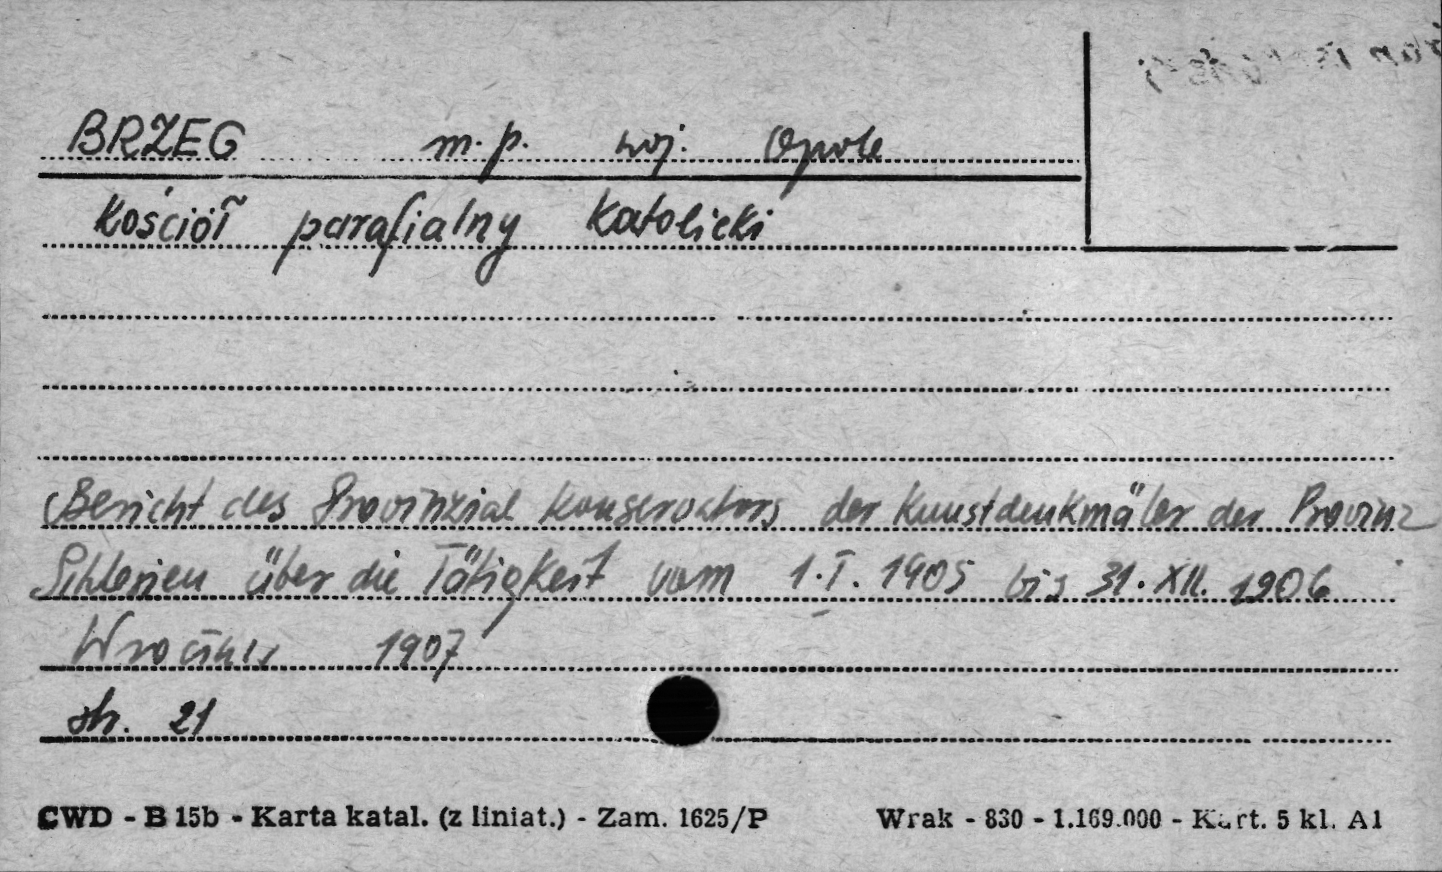 BRZEG m. p. woj. Opole
Kościół parafialny Katolicki
Bericht des Provinzial Konservators der Kunstdenkmäler der Provinz
Schlesien über die Tätigkeit vom 1.I.1905 bis 31.XII.1906
Wrocław 1907
str. 21
CWD - B 15b - Karta katal. (z liniat.) - Zam. 1625/P Wrak - 830 - 1.169.000 - Kart. 5 kl. A1